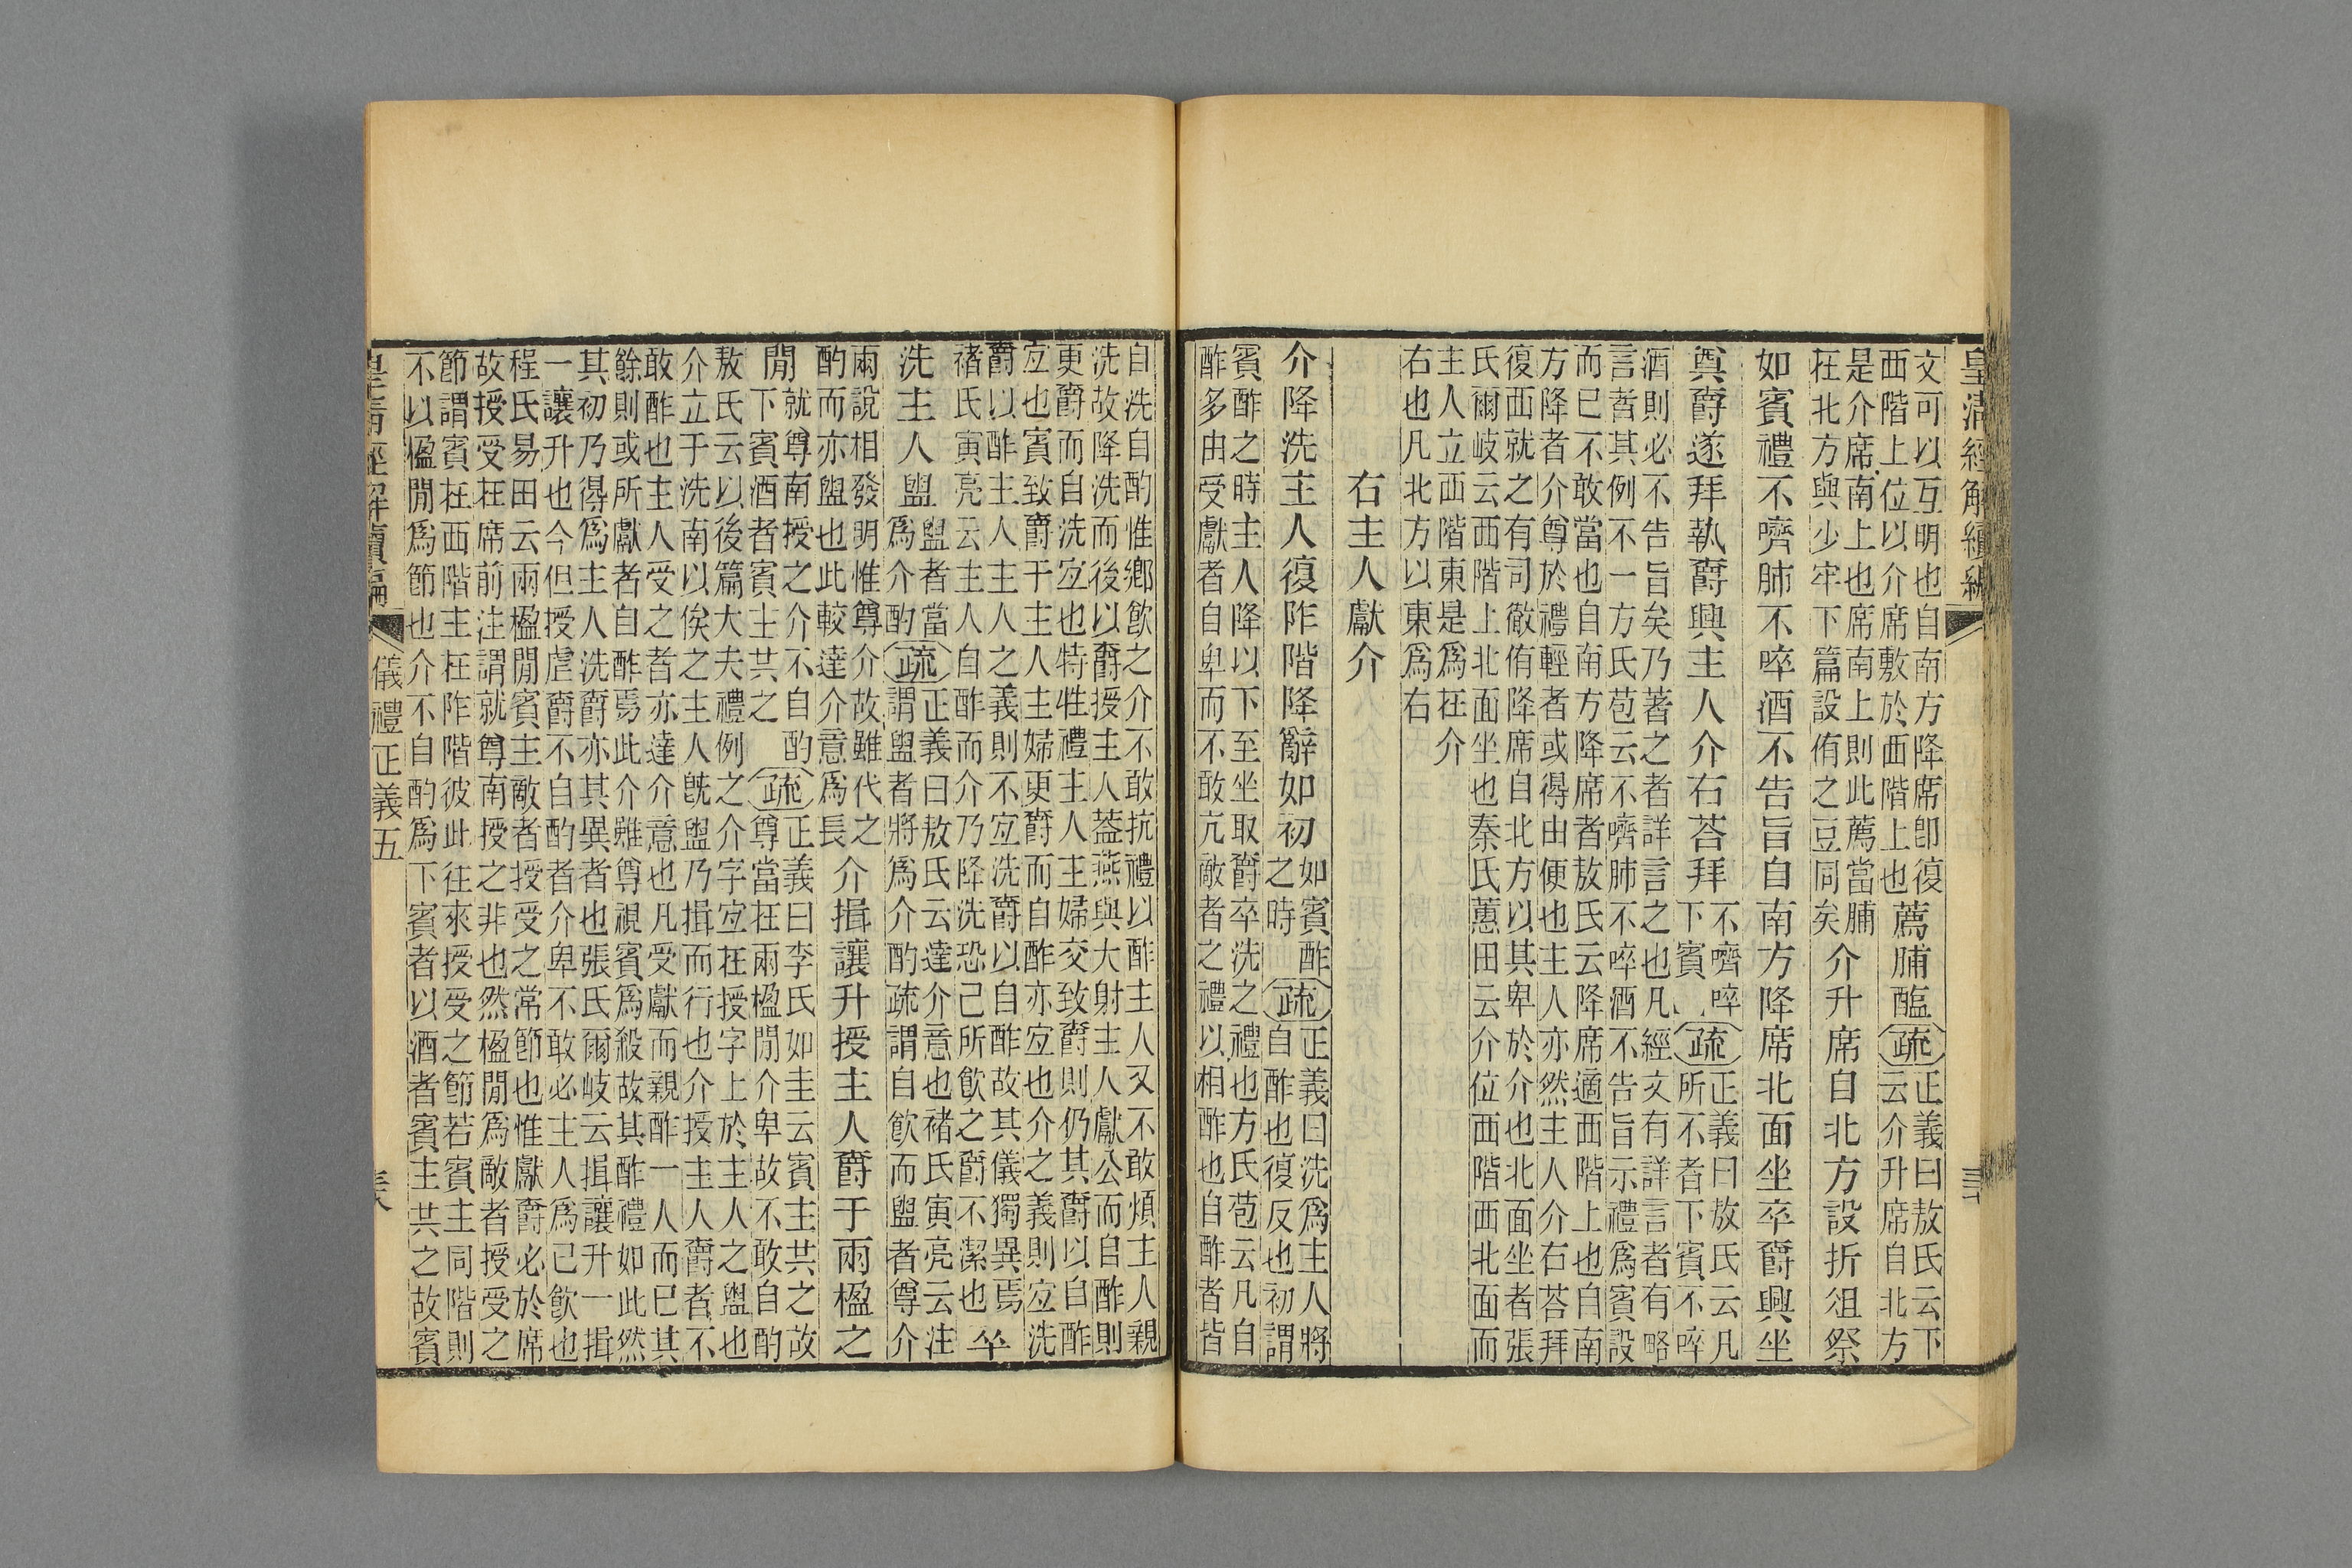 皇清經解續編
文可以互明也自南方降席卽復
西階上位以介席敷於西階上也
薦脯醢
疏
正義曰敖氏云下
云介升席自北方
是介席南上也席南上則此薦當脯
在北方與少牢下篇設侑之豆同矣
介升席自北方設折俎祭
如賓禮不嚌肺不啐酒不告旨自南方降席北面坐卒爵興坐
奠爵遂拜執爵興主人介右荅拜
不嚌啐
下賓
疏
正義曰敖氏云凡
所不者下賓不啐
酒則必不告旨矣乃著之者詳言之也凡經文有詳言者有略
言者其例不一方氏苞云不嚌肺不啐酒不告旨示禮爲賓設
而已不敢當也自南方降席者敖氏云降席適西階上也自南
方降者介尊於禮輕者或得由便也主人亦然主人介右荅拜
復西就之有司徹侑降席自北方以其卑於介也北面坐者張
氏爾岐云西階上北面坐也秦氏蕙田云介位西階西北面而
主人立西階東是爲在介
右也凡北方以東爲右
右主人獻介
介降洗主人復阼階降辭如初
如賓酢
之時
疏
正義曰洗爲主人將
自酢也復反也初謂
賓酢之時主人降以下至坐取爵卒洗之禮也方氏苞云凡自
酢多由受獻者自卑而不敢亢敵者之禮以相酢也自酢者皆
自洗自酌惟鄉飮之介不敢抗禮以酢主人又不敢煩主人親
洗故降洗而後以爵授主人葢燕與大射主人獻公而自酢則
更爵而自洗宐也特牲禮主人主婦交致爵則仍其爵以自酢
宐也賓致爵于主人主婦更爵而自酢亦宐也介之義則宐洗
爵以酢主人主人之義則不宐洗爵以自酢故其儀獨異焉
褚氏寅亮云主人自酢而介乃降洗恐己所飮之爵不潔也
卒
洗主人盥
盥者當
爲介酌
疏
正義曰敖氏云達介意也褚氏寅亮云注
謂盥者將爲介酌疏謂自飮而盥者尊介
兩說相發明惟尊介故雖代之
酌而亦盥也此較達介意爲長
介揖讓升授主人爵于兩楹之
閒
就尊南授之介不自酌
下賓酒者賓主共之
疏
正義曰李氏如圭云賓主共之故
尊當在兩楹閒介卑故不敢自酌
敖氏云以後篇大夫禮例之介字宐在授字上於主人之盥也
介立于洗南以俟之主人旣盥乃揖而行也介授主人爵者不
敢酢也主人受之者亦達介意也凡受獻而親酢一人而已其
餘則或所獻者自酢焉此介雖尊視賓爲殺故其酢禮如此然
其初乃得爲主人洗爵亦其異者也張氏爾岐云揖讓升一揖
一讓升也今但授虛爵不自酌者介卑不敢必主人爲己飮也
程氏易田云兩楹閒賓主敵者授受之常節也惟獻爵必於席
故授受在席前注謂就尊南授之非也然楹閒爲敵者授受之
節謂賓在西階主在阼階彼此往來授受之節若賓主同階則
不以楹閒爲節也介不自酌爲下賓者以酒者賓主共之故賓
皇清經解續編
儀禮正義五